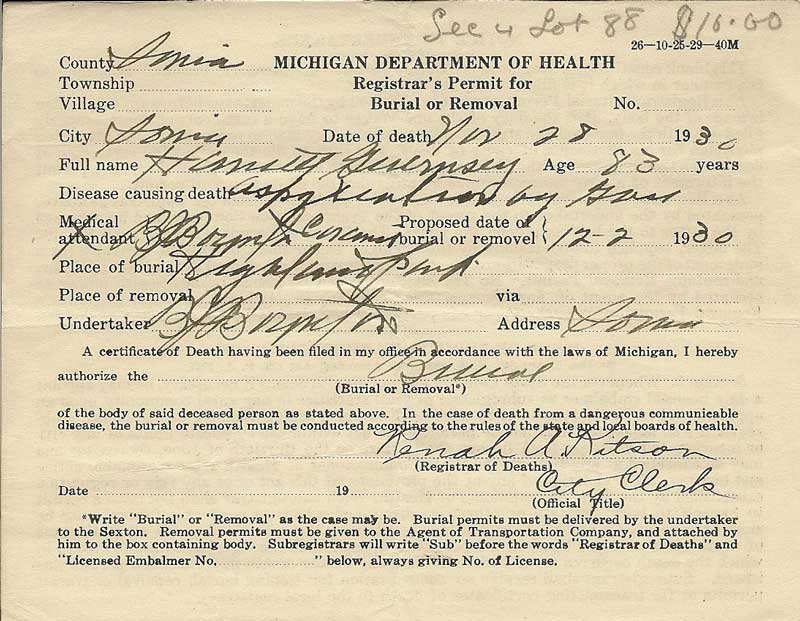 Sec 4 Lot 88 $10.00
26—10-25-29—40M
County Ionia MICHIGAN DEPARTMENT OF HEALTH
Township Registrar's Permit for
Village Burial or Removal No.
City Ionia Date of death Nov 28 1930
Full name Harriett Guernsey Age 83 years
Disease causing death by Gas
Medical attendant Coroner Proposed date of burial or removel 12-2 1930
Place of burial Highland Park
Place of removal via
Undertaker Address Ionia
A certificate of Death having been filed in my office in accordance with the laws of Michigan, I hereby
authorize the Burial
(Burial or Removal*)
of the body of said deceased person as stated above. In the case of death from a dangerous communicable
disease, the burial or removal must be conducted according to the rules of the state and local boards of health.
A Kitson
(Registrar of Deaths)
Date 19 City Clerk
(Official Title)
*Write "Burial" or "Removal" as the case may be. Burial permits must be delivered by the undertaker
to the Sexton. Removal permits must be given to the Agent of Transportation Company, and attached by
him to the box containing body. Subregistrars will write "Sub" before the words "Registrar of Deaths" and
"Licensed Embalmer No. " below, always giving No. of License.